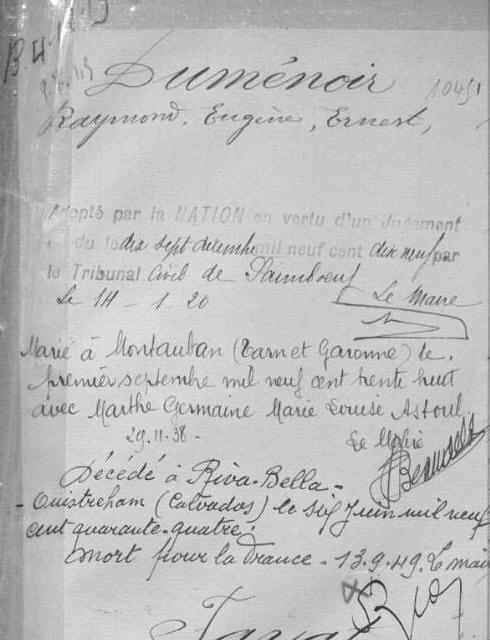 B.4
Duménoir
10451
Raymond, Eugène, Ernest,
Adopté par la NATION en vertu d'un Jugement
du le dix sept décembre mil neuf cent dix neuf par
le Tribunal Civil de Paimboeuf
Le 14 - 1 20 Le Maire
Marié à Montauban (Tarn et Garonne) le
premier septembre mil neuf cent trente huit
avec Marthe Germaine Marie Louise Astoul.
29.11.38 - Le Maire
Décédé à Riva-Bella -
- Ouistreham (Calvados) le six Juin mil neuf
cent quarante-quatre.
Mort pour la France - 13.9.49. Le mai